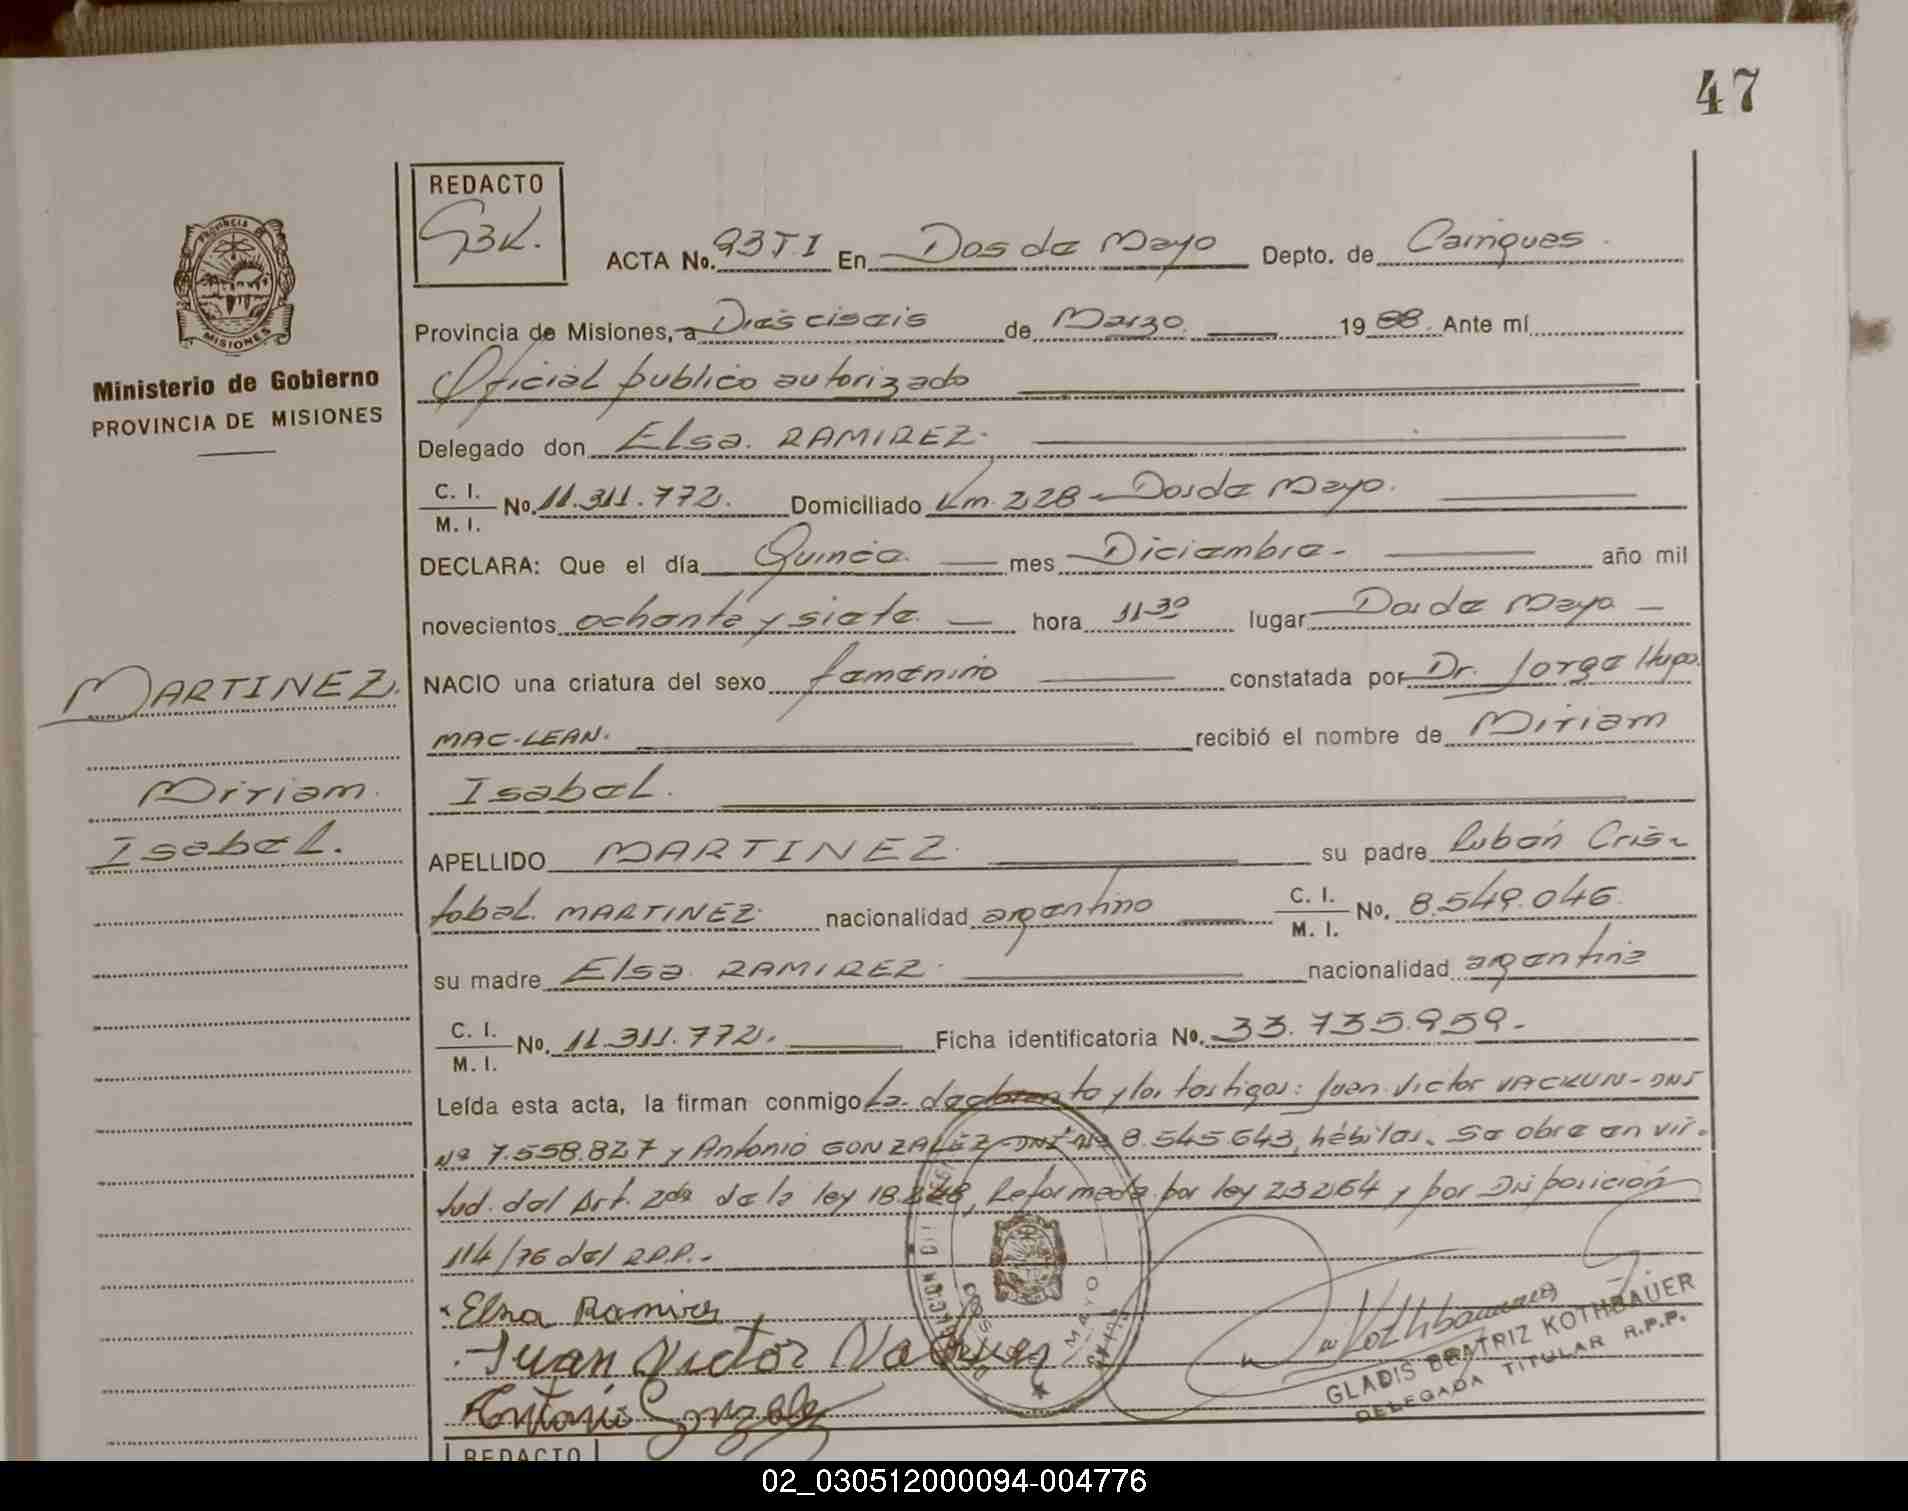 47
REDACTO
GBK.
ACTA No. 93 T.I En Dos de Mayo Depto. de Cainguas.
Provincia de Misiones, a Dieciseis de Marzo 19 88. Ante mí
Oficial publico autorizado
PROVINCIA D
MISIONES
Ministerio de Gobierno
PROVINCIA DE MISIONES
Delegado don Elsa. RAMIREZ.
C. I.
M. I. No. 11.311.772. Domiciliado Km. 228 - Dos de Mayo.
DECLARA: Que el día Quince mes Diciembre - año mil
novecientos ochenta y siete. hora 11-30 lugar Dos de Mayo -
NACIO una criatura del sexo femenino constatada por Dr. Jorge Hugo.
MAC-LEAN. recibió el nombre de Miriam
Isabel.
MARTINEZ.
Miriam.
Isabel.
APELLIDO MARTINEZ. su padre Rubén Cris-
tobal. MARTINEZ. nacionalidad argentino C. I.
M. I. No. 8.549.046.
su madre Elsa. RAMIREZ. nacionalidad argentina
C. I.
M. I. No. 11.311.772. Ficha identificatoria No. 33.735.959.-
Leída esta acta, la firman conmigo La declarante y los testigos: Juan Victor VACKUN-DNI
Nº 7.558.827 y Antonio GONZALEZ-DNI Nº 8.545.643, hábiles. Se obra en vir-
tud. del Art. 2do de la ley 18.248, Reformada por ley 23264 y por Disposición
114/76 del R.P.P.-
Elsa Ramires
Juan Victor
Antonio Gonzalez
DOS DE MAYO
Kothbauer
GLADIS BEATRIZ KOTHBAUER
DELEGADA TITULAR R.P.P.
REDACTO
02_030512000094-004776